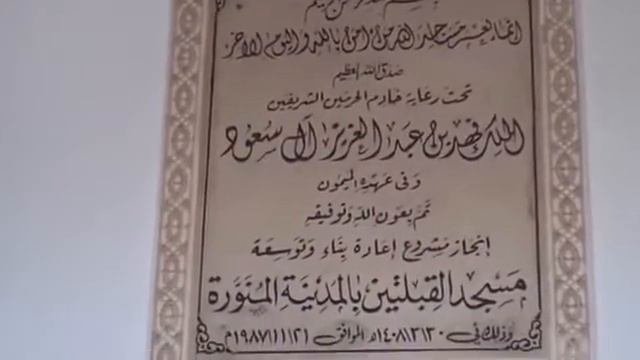 بسم الله الرحمن الرحيم
انما يعمر مساجد الله من آمن بالله واليوم الآخر
صدق الله العظيم
تحت رعاية خادم الحرمين الشريفين
الملك فهد بن عبد العزيز آل سعود
وفي عهده الميمون
تم بعون الله وتوفيقه
إنجاز مشروع إعادة بناء وتوسعة
مسجد القبلتين بالمدينة المنورة
وذلك في ١٤٠٨/٣/٣٠هـ الموافق ١٩٨٧/١١/٢١م